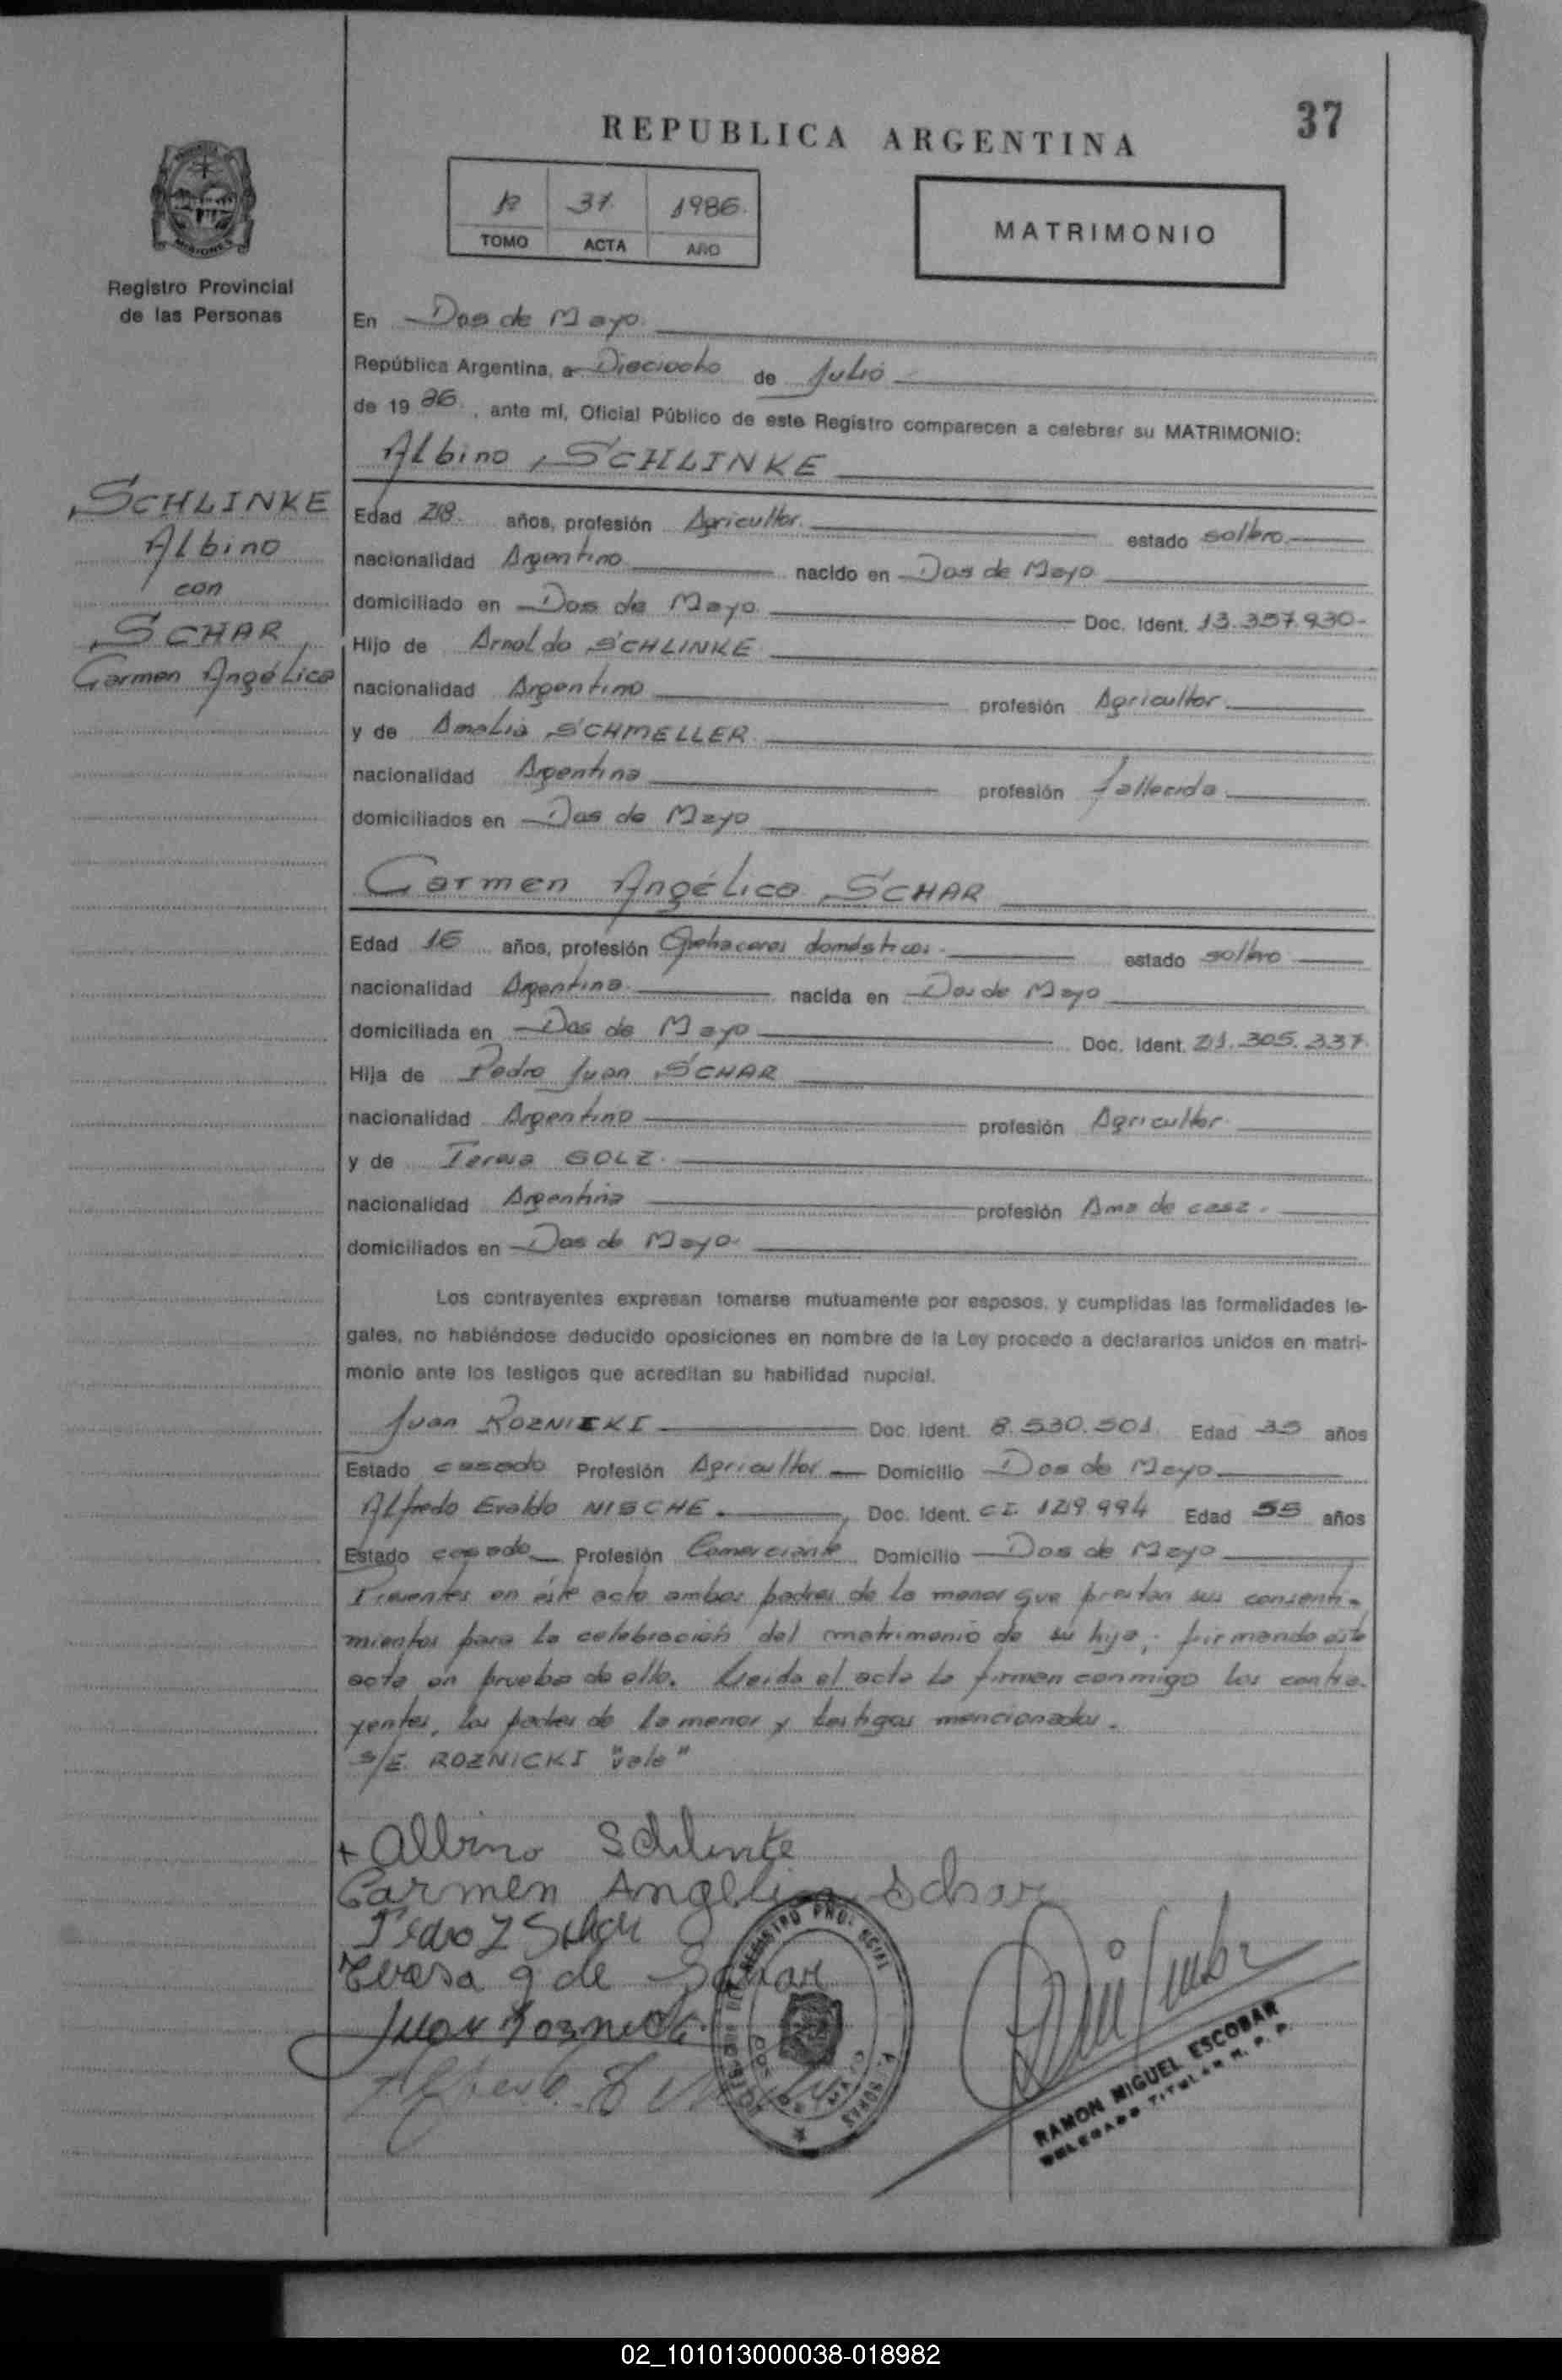 37
REPUBLICA ARGENTINA
1º 37 1986
TOMO ACTA AÑO
MATRIMONIO
MISIONES
Registro Provincial
de las Personas
SCHLINKE
Albino
con
SCHAR
Carmen Angélica
En Dos de Mayo
República Argentina, a Dieciocho de Julio
de 1986, ante mí, Oficial Público de este Registro comparecen a celebrar su MATRIMONIO:
Albino SCHLINKE
Edad 28 años, profesión Agricultor. estado soltero
nacionalidad Argentino nacido en Dos de Mayo
domiciliado en Dos de Mayo Doc. Ident. 13.357.930-
Hijo de Arnoldo SCHLINKE
nacionalidad Argentino profesión Agricultor
y de Amalia SCHMELLER
nacionalidad Argentina profesión fallecida
domiciliados en Dos de Mayo
Carmen Angélica SCHAR
Edad 16 años, profesión Quehaceres domésticos. estado soltero
nacionalidad Argentina nacida en Dos de Mayo
domiciliada en Dos de Mayo Doc. Ident. 21.305.337.
Hija de Pedro Juan SCHAR
nacionalidad Argentino profesión Agricultor
y de Teresa GOLZ.
nacionalidad Argentina profesión Ama de casa.
domiciliados en Dos de Mayo
Los contrayentes expresan tomarse mutuamente por esposos, y cumplidas las formalidades le-
gales, no habiéndose deducido oposiciones en nombre de la Ley procedo a declararlos unidos en matri-
monio ante los testigos que acreditan su habilidad nupcial.
Juan ROZNICKI Doc. Ident. 8.530.501. Edad 35 años
Estado casado Profesión Agricultor Domicilio Dos de Mayo
Alfredo Evaldo NISCHE. Doc. Ident. CI 129.994 Edad 55 años
Estado casado Profesión Comerciante Domicilio Dos de Mayo
Presentes en éste acto ambos padres de la menor que prestan sus consenti-
mientos para la celebración del matrimonio de su hija, firmando este
acta en prueba de ello. Leida el acta la firman conmigo los contra-
yentes, los padres de la menor y testigos mencionados.
S/E. ROZNICKI "vale"
+ Albino Schlinke
Carmen Angelica Schar
Pedro J Schar
Teresa g de Schar
Juan Roznicki
RAMON MIGUEL ESCOBAR
DELEGADO TITULAR R. P. P.
02_101013000038-018982